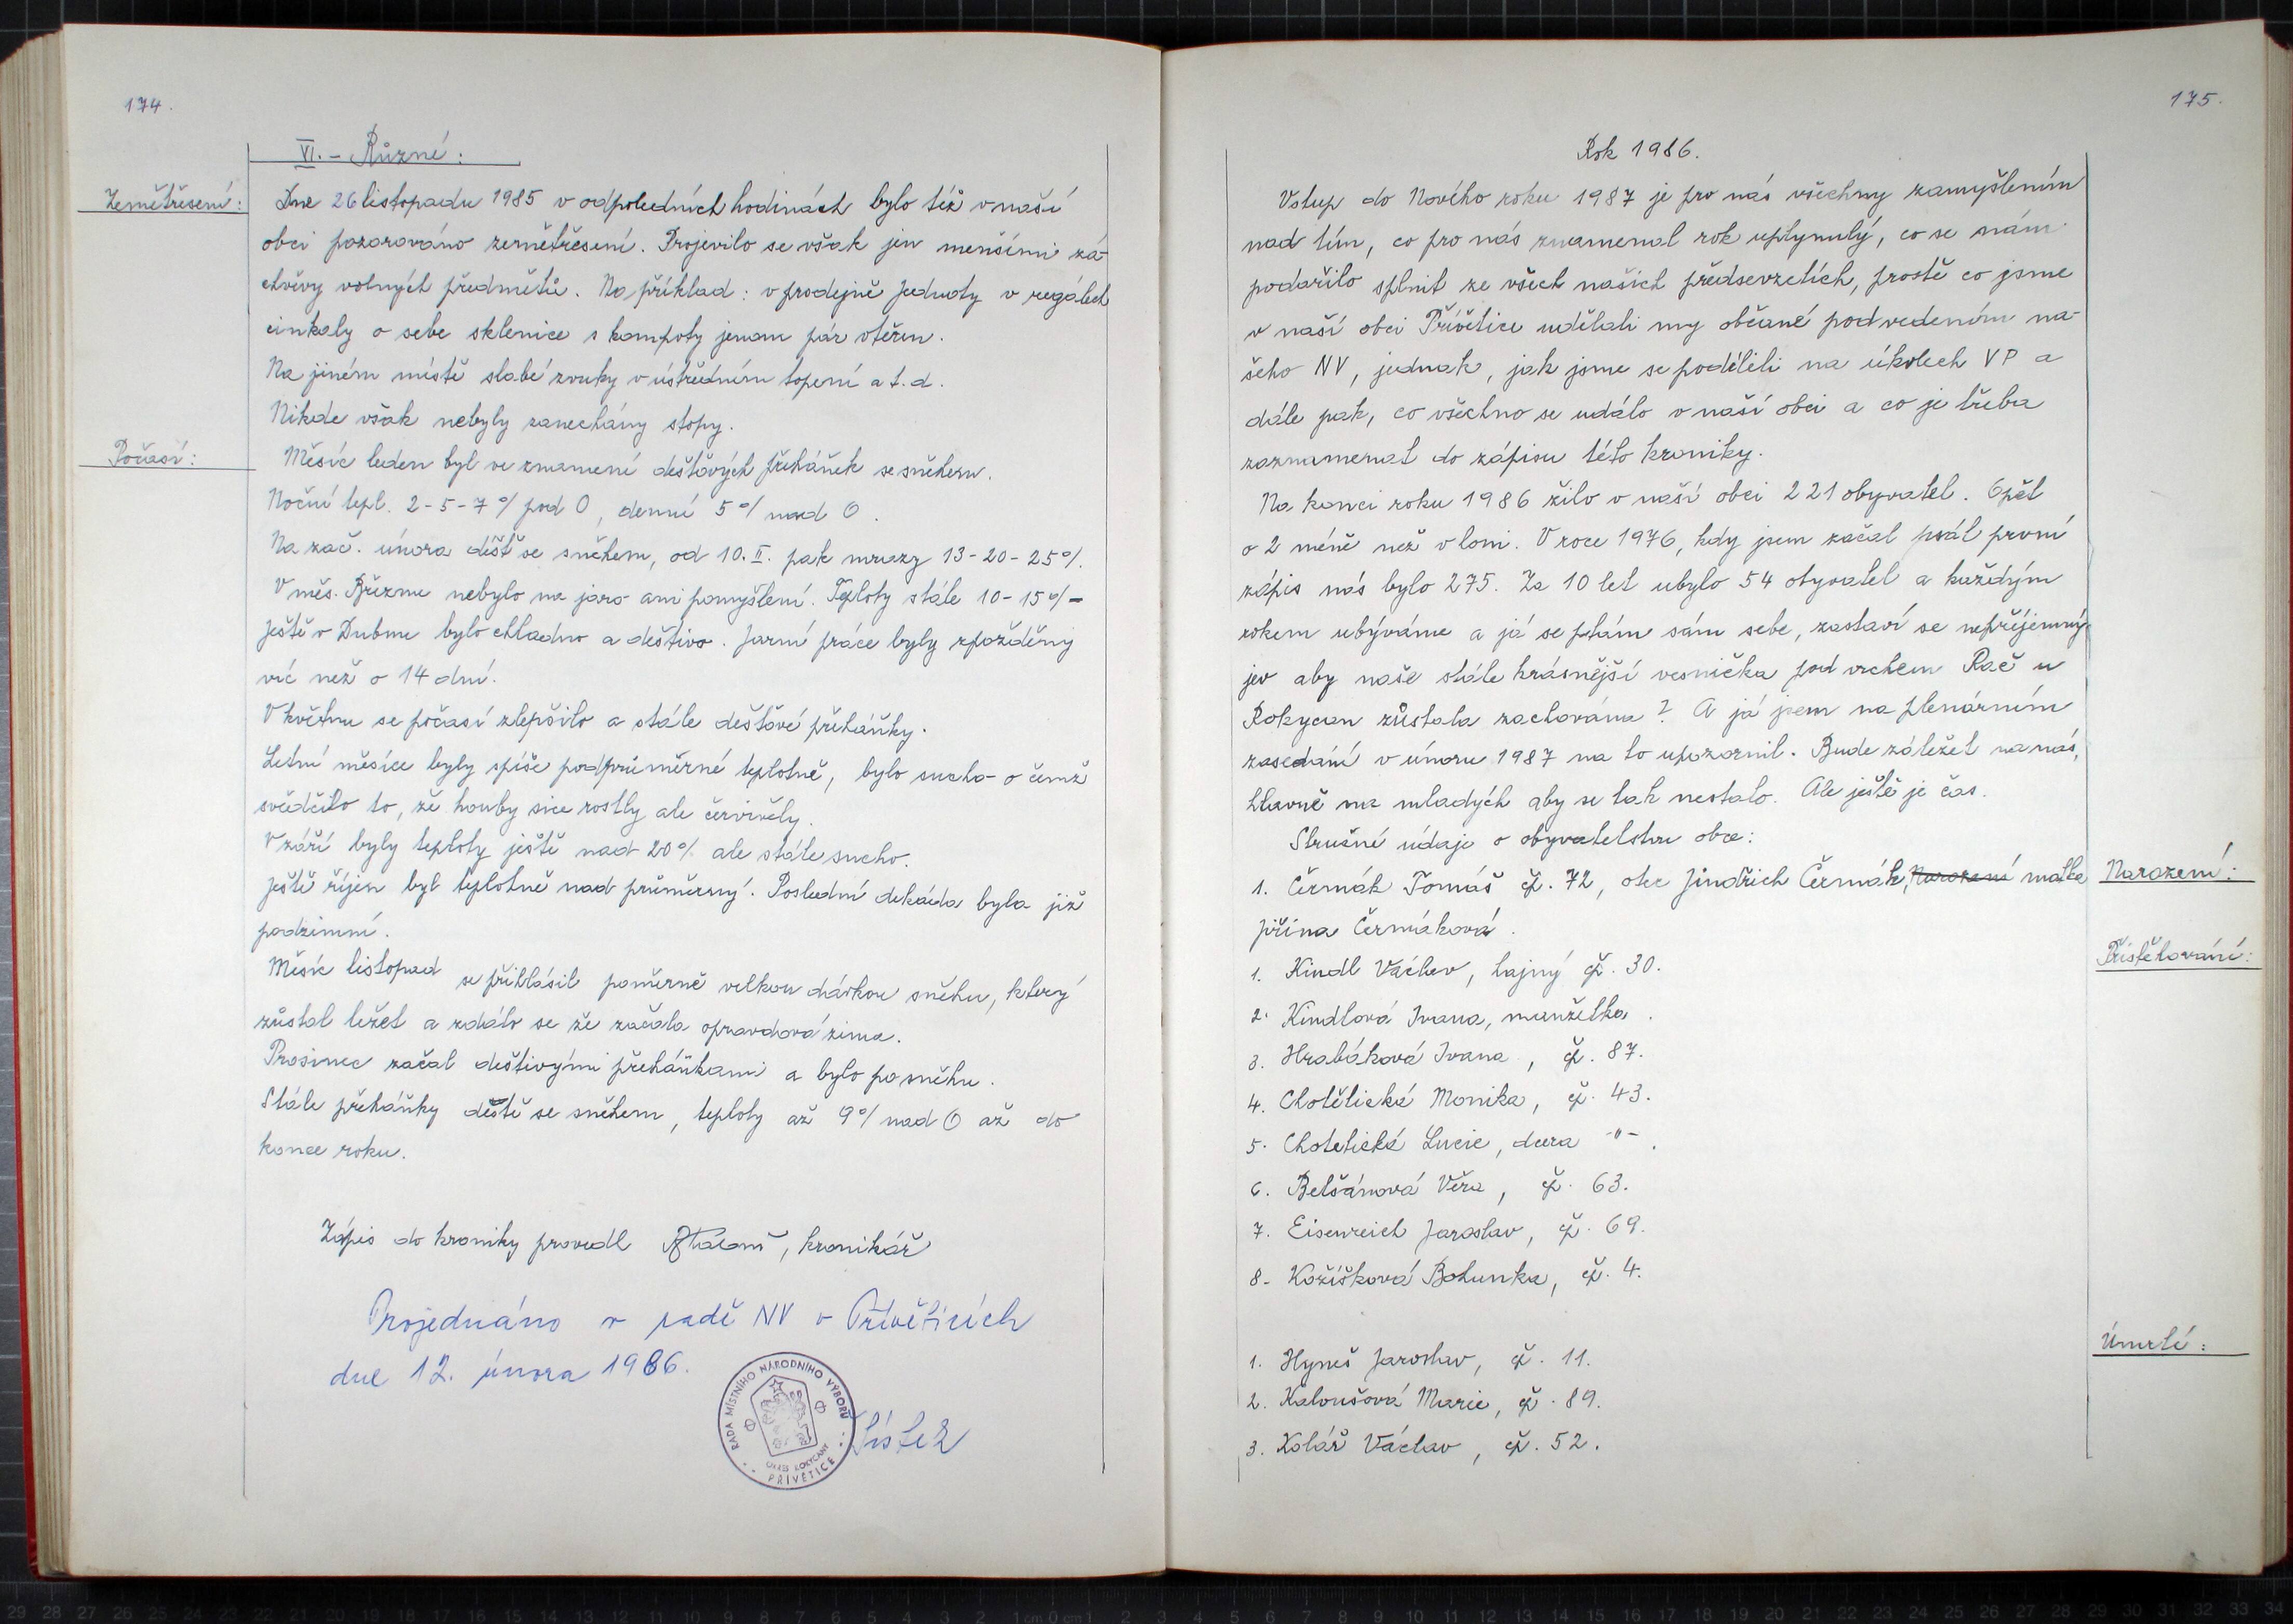 174.
VI. - Různé:
Zemětřesení:
Dne 26 listopadu 1985 v odpoledních hodinách bylo též v naší
obci pozorováno zemětřesení. Projevilo se však jen menšími zá-
chvěvy volných předmětů. Na příklad: v prodejně Jednoty v regálech
cinkaly o sebe sklenice s kompoty jenom pár vteřin.
Na jiném místě slabé zvuky v ústředním topení a t.d.
Nikde však nebyly zanechány stopy.
Počasí:
Měsíc leden byl ve znamení dešťových přeháněk se sněhem.
Noční tepl. 2-5-7°/ pod 0, denní 5°/ nad 0.
Na zač. února déšť se sněhem, od 10. II. pak mrazy 13-20-25°/.
V měs. Březnu nebylo na jaro ani pomyšlení. Teploty stále 10-15°/-
Ještě v Dubnu bylo chladno a deštivo. Jarní práce byly zpožděny
víc než o 14 dní.
V květnu se počasí zlepšilo a stále dešťové přeháňky.
Letní měsíce byly spíše podprůměrné teplotně, bylo sucho - o čemž
svědčilo to, že houby sice rostly ale červivěly.
V září byly teploty ještě nad 20°/. ale stále sucho.
Ještě říjen byl teplotně nad průměrný. Poslední dekáda byla již
podzimní.
Měsíc listopad se přihlásil poměrně velkou dávkou sněhu, který
zůstal ležet a zdálo se že začala opravdová zima.
Prosinec začal deštivými přeháňkami a bylo po sněhu.
Stále přeháňky déště se sněhem, teploty až 9°/ nad 0 až do
konce roku.
Zápis do kroniky provedl , kronikář
Projednáno v radě NV v Přívěticích
dne 12. února 1986.
RADA MÍSTNÍHO NÁRODNÍHO VÝBORU
OKRES ROKYCANY
PŘÍVĚTICE
175.
Rok 1986.
Vstup do Nového roku 1987 je pro nás všechny zamyšlením
nad tím, co pro nás znamenal rok uplynulý, co se nám
podařilo splnit ze všech našich předsevzetích, prostě co jsme
v naší obci Přívětice udělali my občané pod vedením na-
šeho NV, jednak, jak jsme se podíleli na úkolech VP a
dále pak, co všechno se událo v naší obci a co je třeba
zaznamenat do zápisu této kroniky.
Na konci roku 1986 žilo v naší obci 221 obyvatel. Opět
o 2 méně než vloni. V roce 1976, kdy jsem začal psát první
zápis nás bylo 275. Za 10 let ubylo 54 obyvatel a každým
rokem ubýváme a já se ptám sám sebe, zastaví se nepříjemný
jev aby naše stále krásnější vesnička pod vrchem Rač u
Rokycan zůstala zachována? A já jsem na plenárním
zasedání v únoru 1987 na to upozornil. Bude záležet na nás,
hlavně na mladých aby se tak nestalo. Ale ještě je čas.
Stručné údaje o obyvatelstvu obce:
Narození:
1. Čermák Tomáš čp. 72, otec Jindřich Čermák, Narození matka
Jiřina Čermáková.
Přistěhování:
1. Kindl Václav, hajný čp. 30.
2. Kindlová Ivana, manželka.
3. Hrabáková Ivana, čp. 87.
4. Chotělická Monika, čp. 43.
5. Chotelická Lucie, dcera -"-.
6. Belšánová Věra, čp. 63.
7. Eisenreich Jaroslav, čp. 69.
8- Kožíšková Bohunka, čp. 4.
Úmrtí:
1. Hyneš Jaroslav, čp. 11.
2. Kaloušová Marie, čp. 89.
3. Kolář Václav, čp. 52.